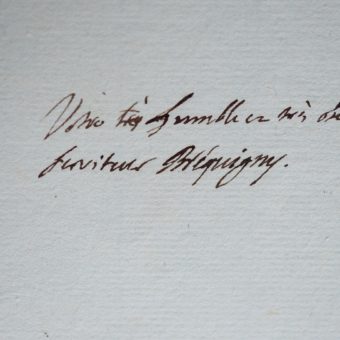 Votre très humble et très ob
serviteur Bréquigny.